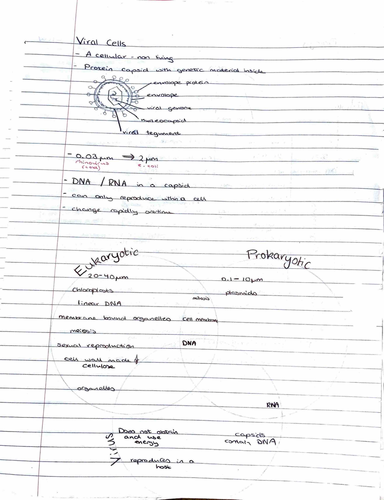 Viral Cells
- A cellular - non living
- Protein capsid with genetic material inside
envelope protein
envelope
viral genome
nucleocapsid
viral tegument
- 0.03µm → 2µm
- DNA / RNA in a capsid
- can only reproduce within a cell
- change rapidly overtime
Eukaryotic Prokaryotic
20-40µm 0.1-10µm
chloroplasts plasmids
linear DNA
membrane bound organelles cell membrane
meiosis
sexual reproduction DNA
cell wall made of
cellulose
organelles
RNA
Does not obtain capsids
and use contain DNA
energy
reproduces in a
host